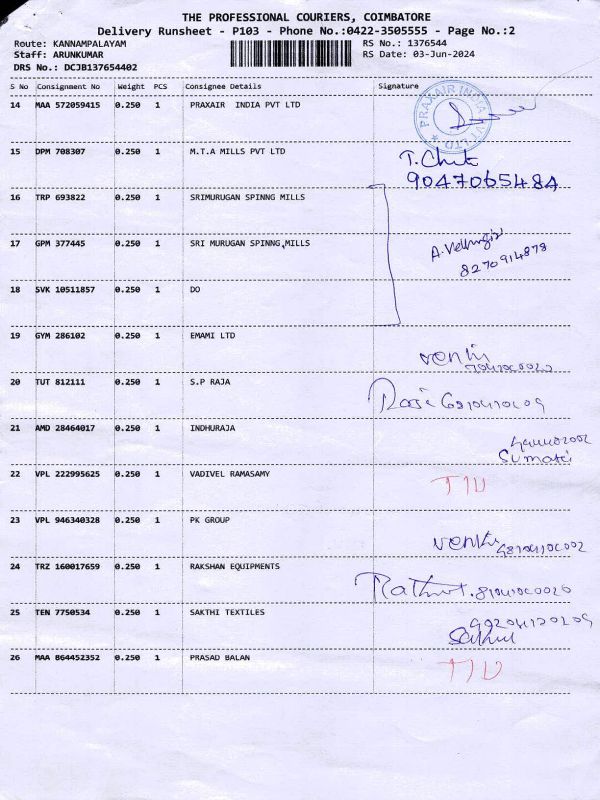 THE PROFESSIONAL COURIERS, COIMBATORE
Delivery Runsheet - P103 - Phone No.:0422-3505555 - Page No.:2
Route: KANNAMPALAYAM RS No.: 1376544
Staff: ARUNKUMAR RS Date: 03-Jun-2024
DRS No.: DCJB137654402
S No Consignment No Weight PCS Consignee Details Signature
14 MAA 572059415 0.250 1 PRAXAIR INDIA PVT LTD PRAXAIR INDIA PVT LTD
15 DPM 708307 0.250 1 M.T.A MILLS PVT LTD
9047065484
16 TRP 693822 0.250 1 SRIMURUGAN SPINNG MILLS
17 GPM 377445 0.250 1 SRI MURUGAN SPINNG,MILLS
8270914878
18 SVK 10511857 0.250 1 DO
19 GYM 286102 0.250 1 EMAMI LTD
venki
20 TUT 812111 0.250 1 S.P RAJA
21 AMD 28464017 0.250 1 INDHURAJA
22 VPL 222995625 0.250 1 VADIVEL RAMASAMY
23 VPL 946340328 0.250 1 PK GROUP venki
24 TRZ 160017659 0.250 1 RAKSHAN EQUIPMENTS
25 TEN 7750534 0.250 1 SAKTHI TEXTILES
26 MAA 864452352 0.250 1 PRASAD BALAN